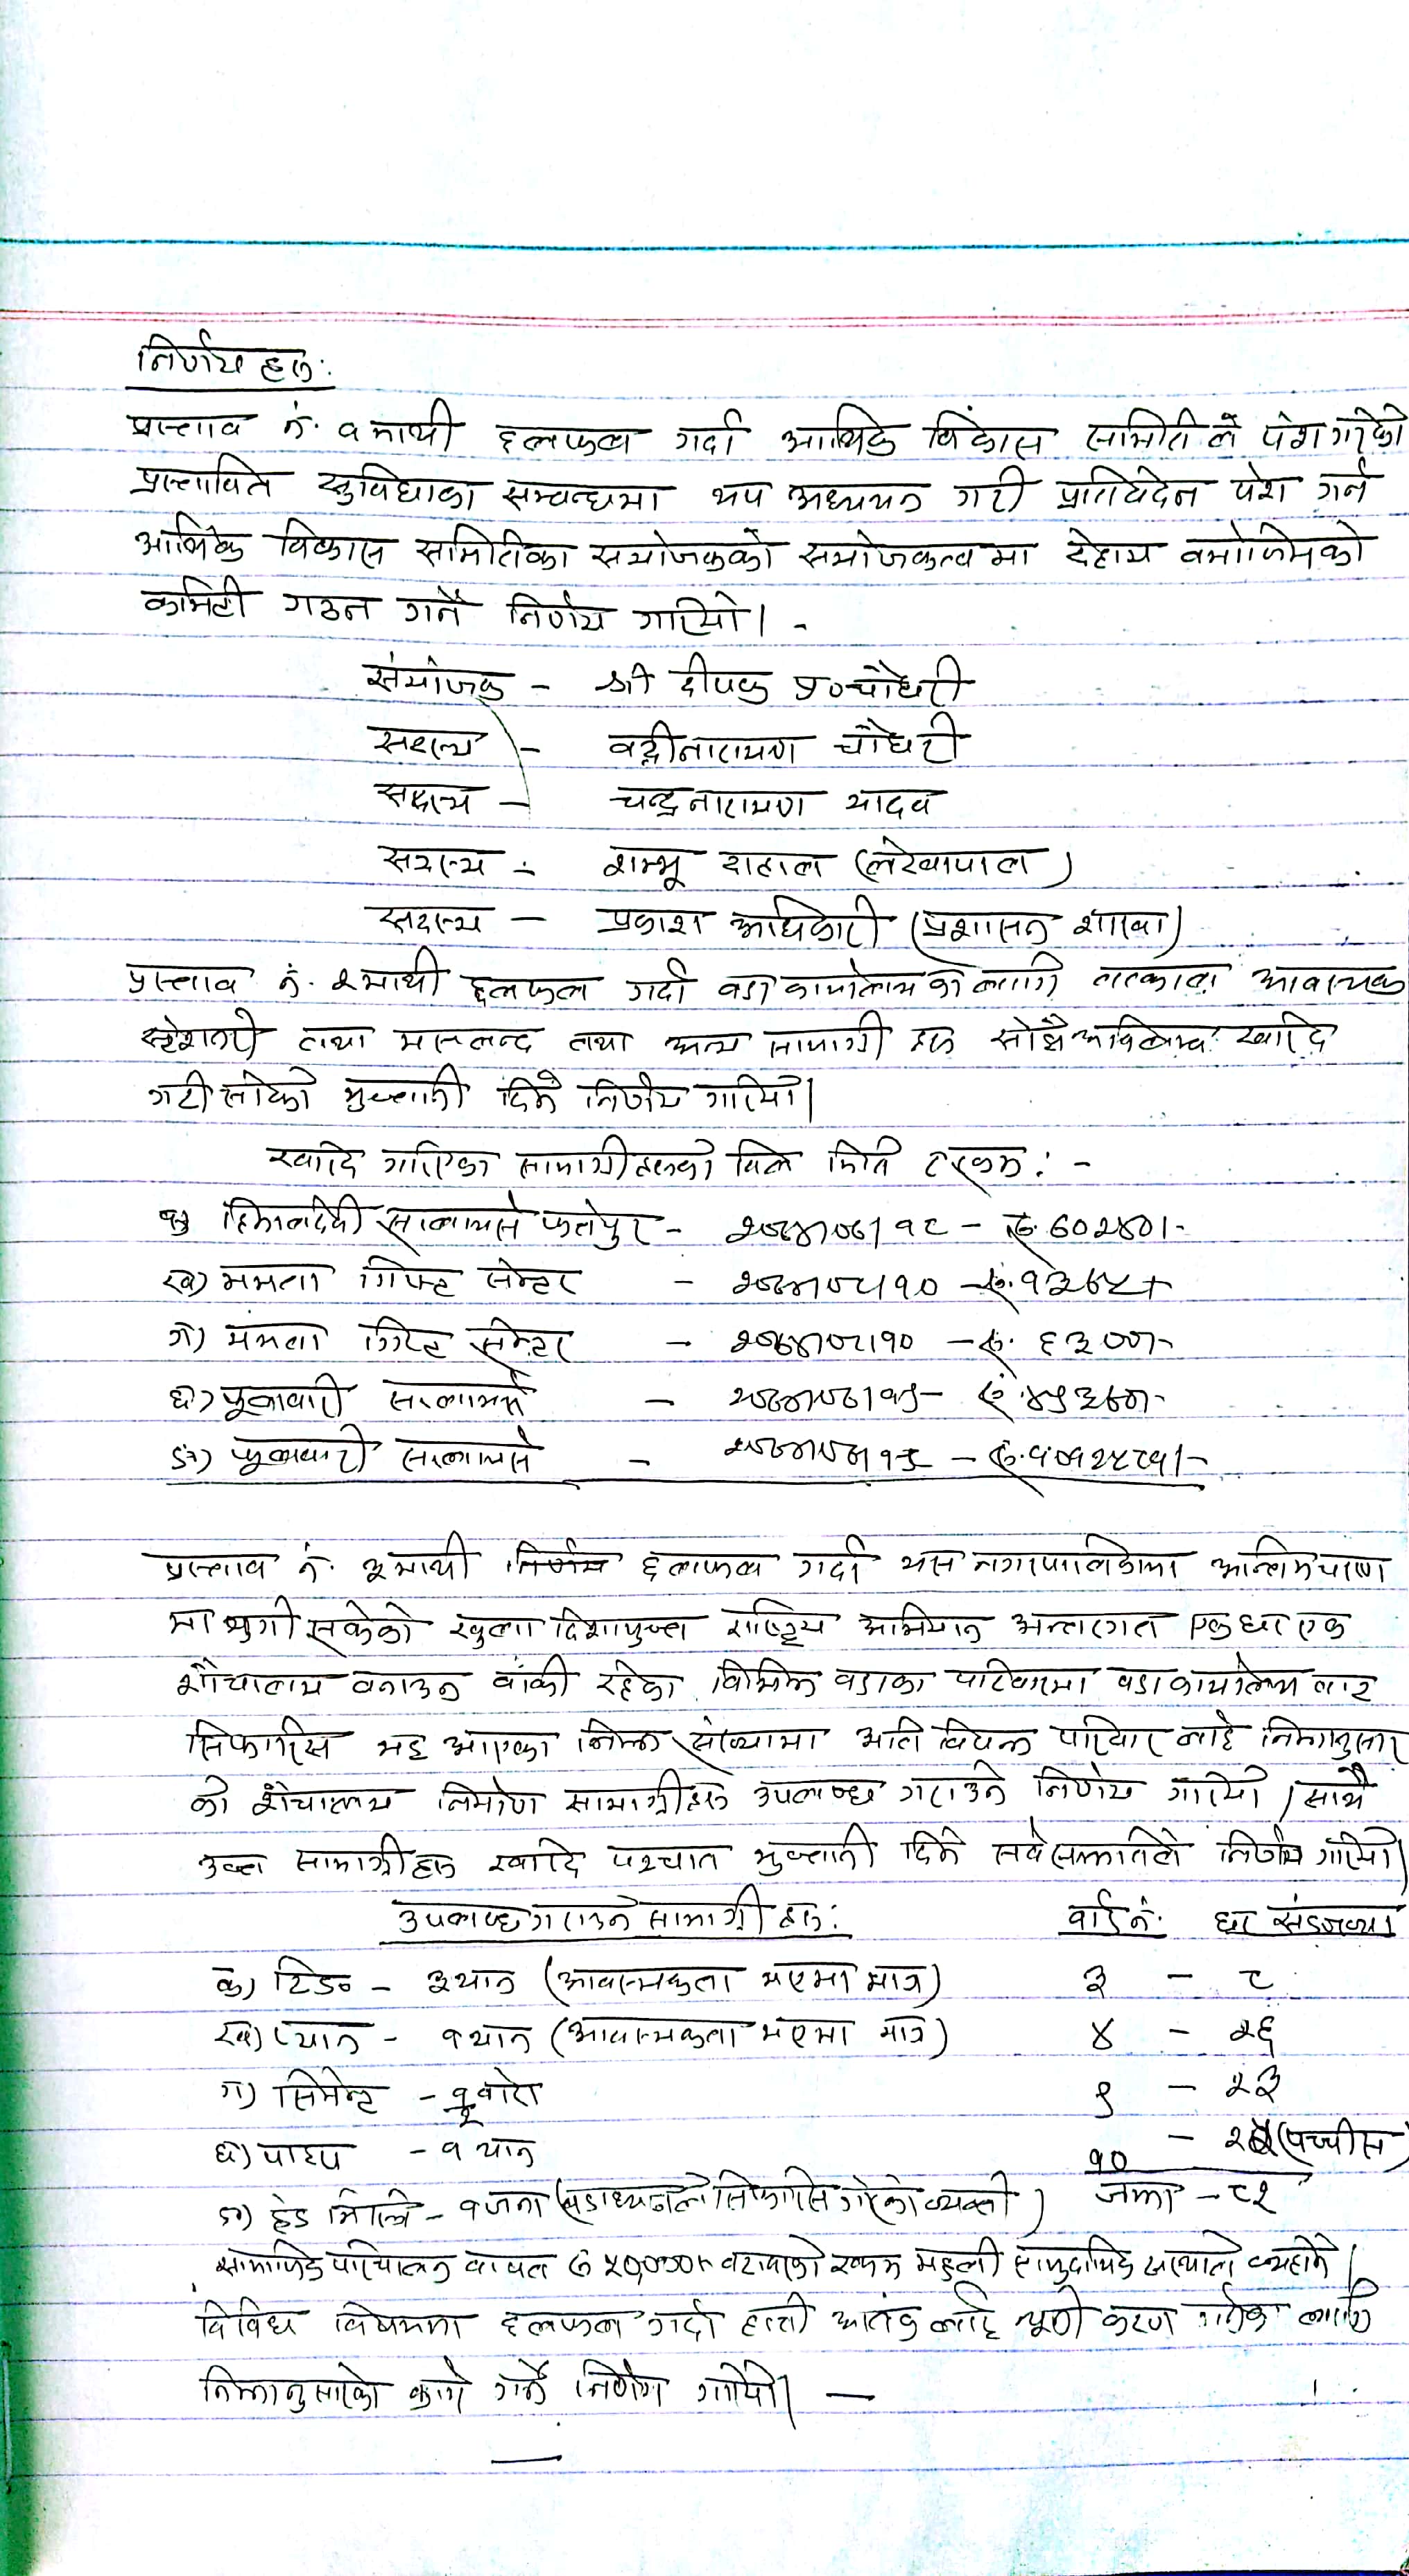 निर्णय हरु:
प्रस्ताव नं. १ माथी छलफल गर्दा आर्थिक विकास समिती ले पेश गरेको
प्रस्तावित सुविधाका सम्वन्धमा थप अध्ययन गरी प्रतिवेदन पेश गर्न
आर्थिक विकास समितिका संयोजकको संयोजकत्व मा देहाय वमोजिमको
कमिटी गठन गर्ने निर्णय गरियो। -
संयोजक - श्री दीपक प्र० चौधरी
सदस्य - वद्रीनारायण चौधरी
सदस्य - चन्द्रनारायण यादव
सदस्य - शम्भू दाहाल (लेखापाल)
सदस्य - प्रकाश अधिकारी (प्रशासन शाखा)
प्रस्ताव नं. २ माथी छलफल गर्दा वडा कार्यालय को लागि तत्काल आवश्यक
स्टेशनरी तथा मसलन्द तथा अन्य सामाग्री हरु सोझै अविलम्ब खरिद
गरी सोको भुक्तानी दिने निर्णय गरियो।
खरिद गरिएका सामाग्रीहरुको विल मिति रकम: -
सप्लायर्स फतेपुर -
ख) ममता गिफ्ट सेन्टर -
ग) ममता गिफ्ट सेन्टर -
घ) फूलवारी सप्लायर्स -
ङ) फूलवारी सप्लायर्स -
प्रस्ताव नं. ३ माथी छलफल गर्दा यस नगरपालिकामा अन्तिम चरण
मा पुगी सकेको खुला दिशामुक्त राष्ट्रिय अभियान अन्तरगत एक घर एक
शौचालय वनाउन वांकी रहेका विभिन्न वडाका परिवारमा वडा कार्यालय वाट
सिफारिस भइ आएका निम्न संख्यामा अति विपन्न परिवार लाई निम्नानुसार
को शौचालय निर्माण सामाग्रीहरु उपलब्ध गराउने निर्णय गरियो। साथै
उक्त सामाग्रीहरु खरिद पश्चात भुक्तानी दिने सर्वसम्मतिले निर्णय गरियो।
उपलब्ध गराउने सामाग्री हरु: वार्ड नं. घर संख्या
क) रिङ - ३ थान (आवश्यकता भएमा मात्र) ३ - ८
ख) प्यान - १ थान (आवश्यकता भएमा मात्र) ४ - २६
ग) सिमेन्ट - वोरा ९ - २३
घ) पाइप - १ थान १० - (पच्चीस)
ङ) हेड मिस्त्रि - १ जना (वडाध्यक्षले सिफारिस गरेको व्यक्ती) जम्मा - ८२
सामाजिक परिचालन वापत वरावरको रकम सामुदायिक संस्थाले व्यहोर्ने।
विविध विषयमा छलफल गर्दा हात्ती आतंक लाई न्यूनी करण गर्नका लागि
निम्नानुसारको कार्य गर्ने निर्णय गरियो। —